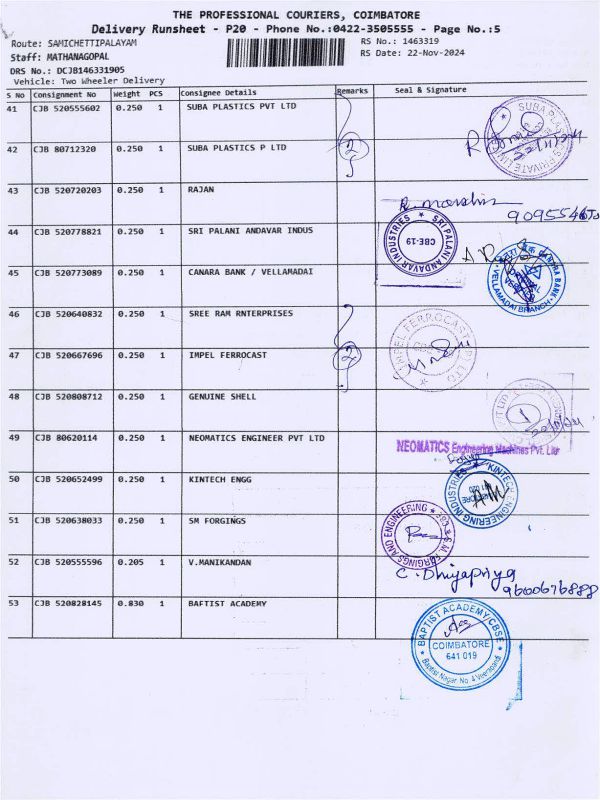 THE PROFESSIONAL COURIERS, COIMBATORE
Delivery Runsheet - P20 - Phone No.:0422-3505555 - Page No.:5
Route: SAMICHETTIPALAYAM RS No.: 1463319
Staff: MATHANAGOPAL RS Date: 22-Nov-2024
DRS No.: DCJB146331905
Vehicle: Two Wheeler Delivery
S No Consignment No Weight PCS Consignee Details Remarks Seal & Signature
41 CJB 520555602 0.250 1 SUBA PLASTICS PVT LTD
SUBA PLASTICS PRIVATE LIMITED
42 CJB 80712320 0.250 1 SUBA PLASTICS P LTD 2
43 CJB 520720203 0.250 1 RAJAN
44 CJB 520778821 0.250 1 SRI PALANI ANDAVAR INDUS
SRI PALANI ANDAVAR INDUSTRIES CBE-19
45 CJB 520773089 0.250 1 CANARA BANK / VELLAMADAI
CANARA BANK VELLAMADAI BRANCH
46 CJB 520640832 0.250 1 SREE RAM RNTERPRISES
47 CJB 520667696 0.250 1 IMPEL FERROCAST 2
IMPEL FERROCAST (P) LTD
48 CJB 520808712 0.250 1 GENUINE SHELL
49 CJB 80620114 0.250 1 NEOMATICS ENGINEER PVT LTD
NEOMATICS Engineering Machines Pvt. Ltd
50 CJB 520652499 0.250 1 KINTECH ENGG
KINTECH ENGINEERING INDUSTRIES
51 CJB 520638033 0.250 1 SM FORGINGS
S.M. FORGINGS AND ENGINEERING
52 CJB 520555596 0.205 1 V.MANIKANDAN
C. Dhiyapriya
9600676888
53 CJB 520828145 0.830 1 BAFTIST ACADEMY
BAPTIST ACADEMY CBSE
COIMBATORE
641 019
Baptist Nagar, No. 4 Veerapandi